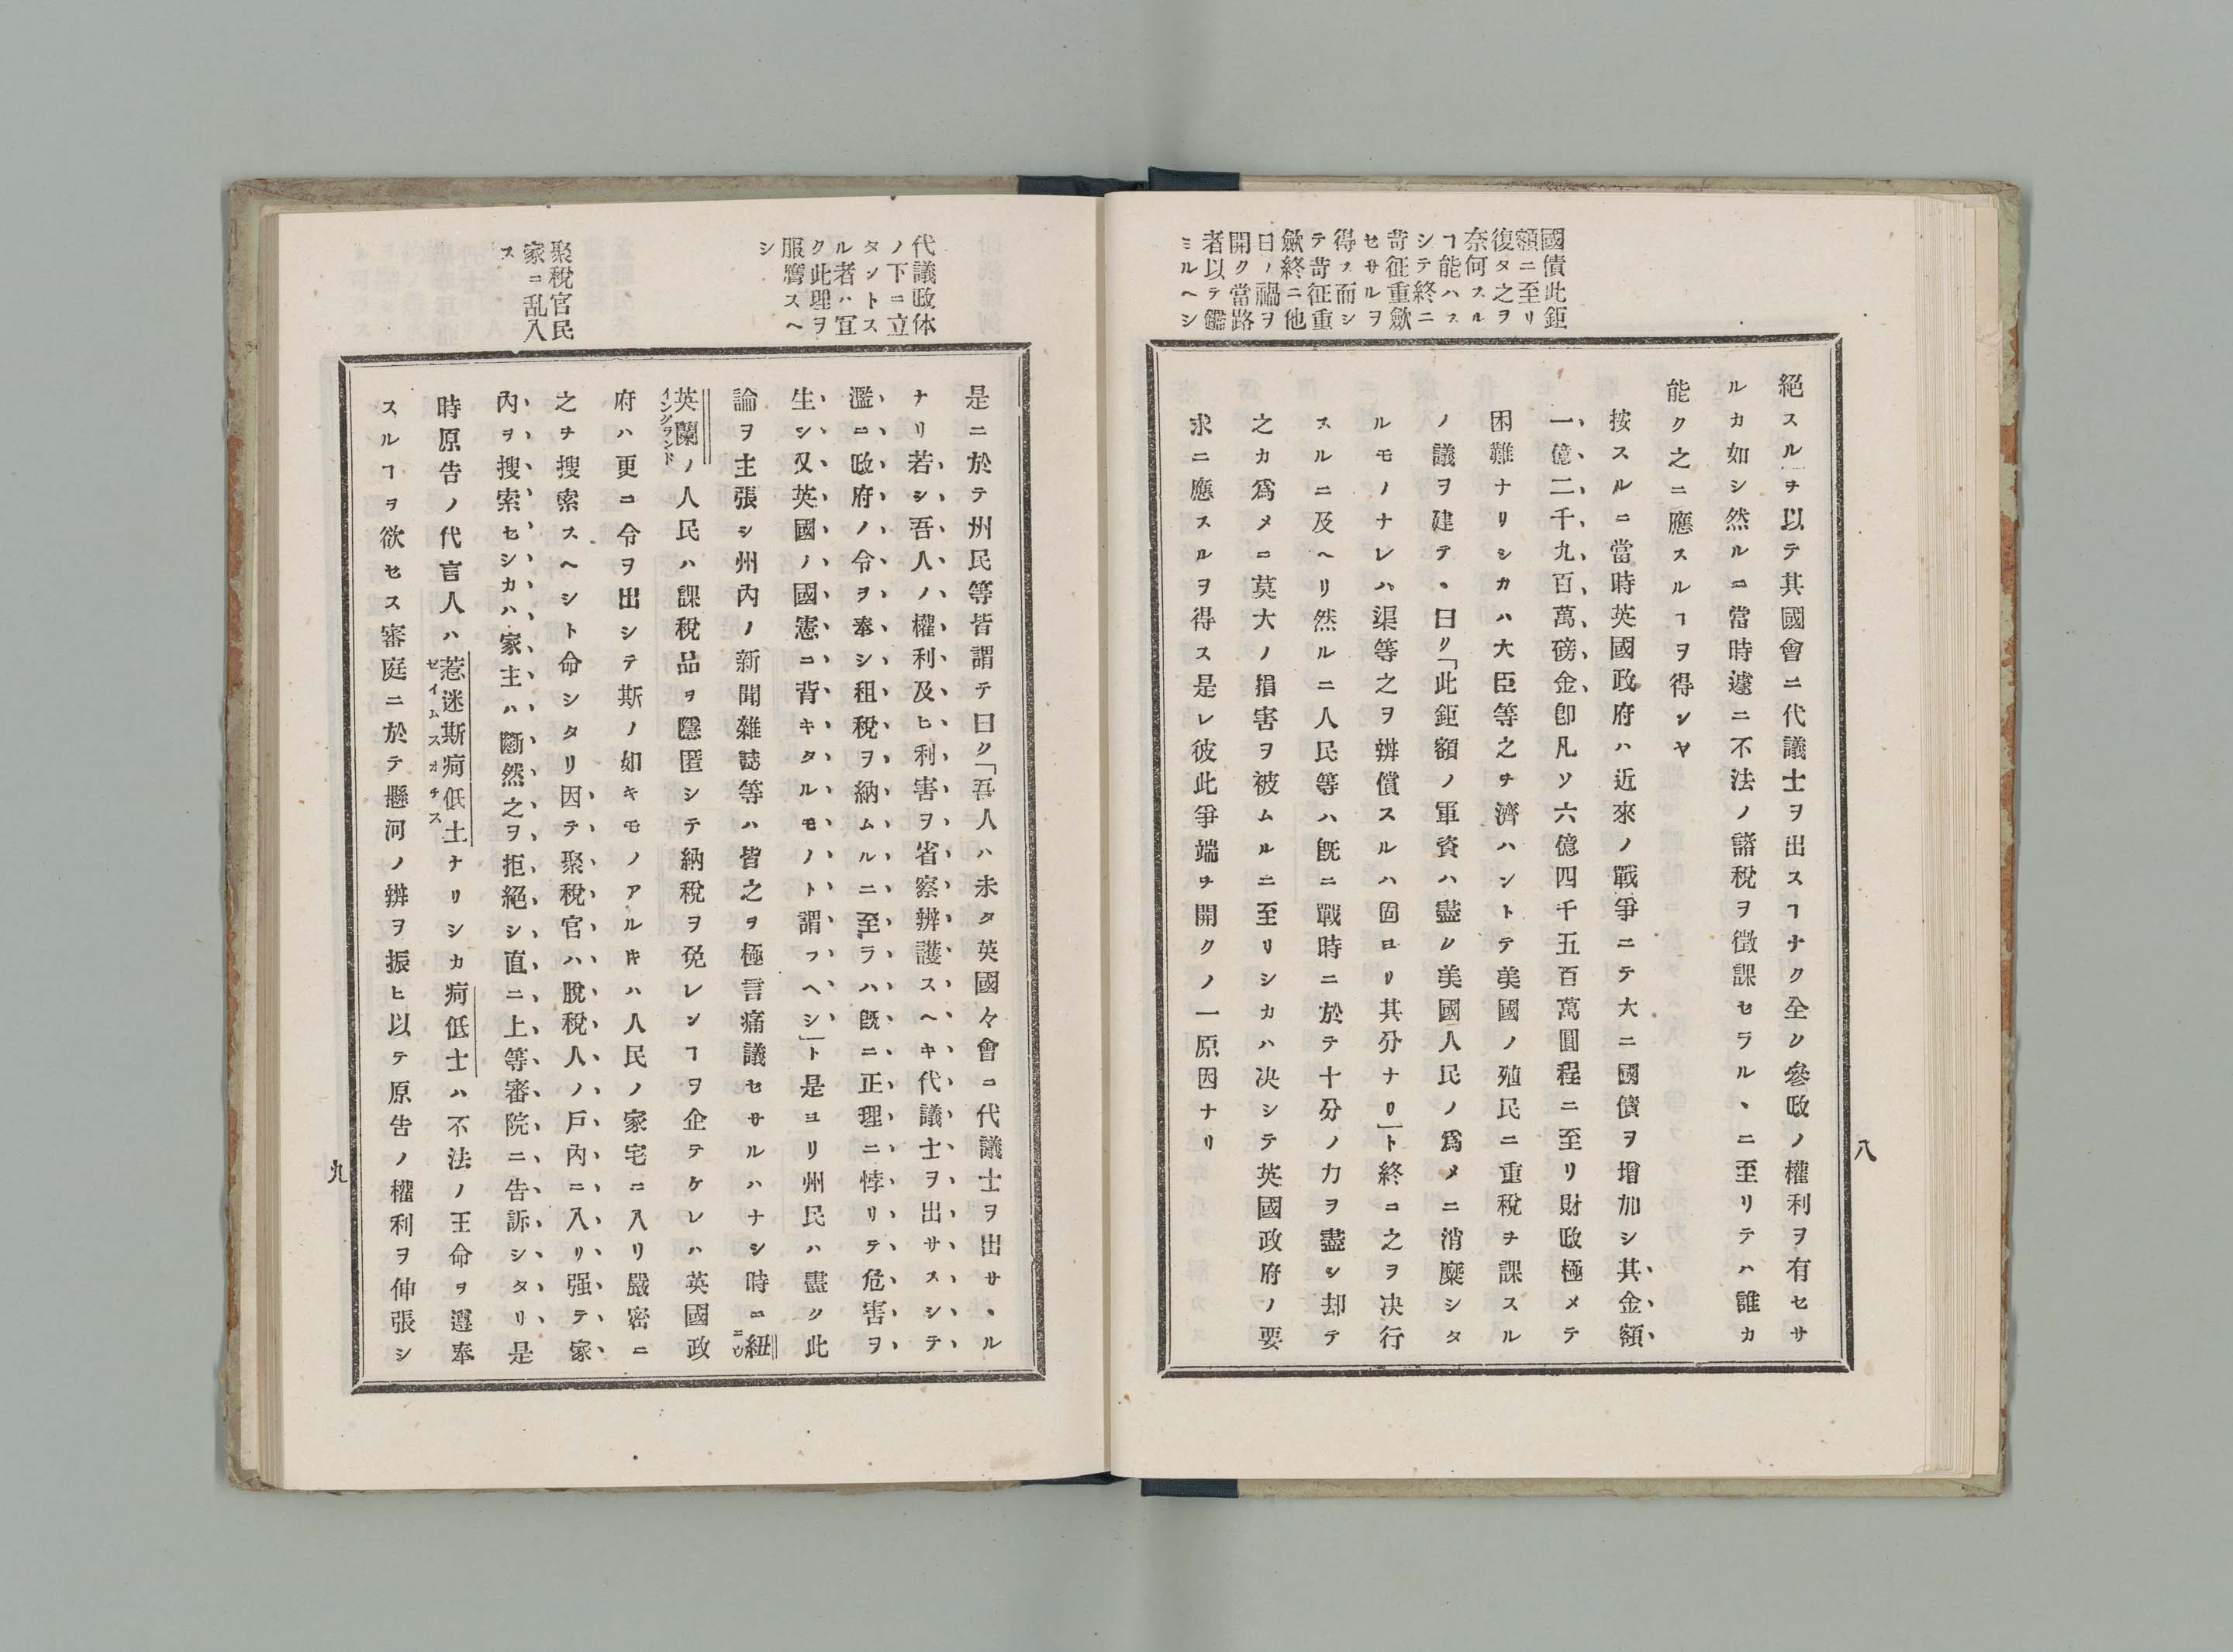 國債此鉅
額ニ至リ
復タ之ヲ
奈何スル
ヿ能ハス
シテ終ニ
苛征重歛
セサルヲ
得ス而シ
テ苛征重
歛終ニ他
日ノ禍ヲ
開ク當路
者以テ鑑
ミルヘシ
絕スルヲ以テ其國會ニ代議士ヲ出スヿナク全ク參政ノ權利ヲ有セサ
ルカ如シ然ルニ當時遽ニ不法ノ諸稅ヲ徵課セラルヽニ至リテハ誰カ
能ク之ニ應スルヿヲ得ンヤ
按スルニ當時英國政府ハ近來ノ戰爭ニテ大ニ國債ヲ增加シ其金額
一億二千九百萬磅金卽凡ソ六億四千五百萬圓程ニ至リ財政極メテ
困難ナリシカハ大臣等之ヲ濟ハントテ美國ノ殖民ニ重稅ヲ課スル
ノ議ヲ建テ、曰リ「此鉅額ノ軍資ハ盡ク美國人民ノ爲メニ消糜シタ
ルモノナレハ渠等之ヲ辨償スルハ固ヨリ其分ナリ」ト終ニ之ヲ决行
スルニ及ヘリ然ルニ人民等ハ旣ニ戰時ニ於テ十分ノ力ヲ盡シ却テ
之カ爲メニ莫大ノ損害ヲ被ムルニ至リシカハ决シテ英國政府ノ要
求ニ應スルヲ得ス是レ彼此爭端ヲ開クノ一原因ナリ
八
代議政体
ノ下ニ立
タントス
ル者ハ宜
ク此理ヲ
服膺スヘ
シ
聚稅官民
家ニ乱入
ス
是ニ於テ州民等皆謂テ曰ク「吾人ハ未タ英國々會ニ代議士ヲ出サヽル
ナリ若シ吾人ノ權利及ヒ利害ヲ省察辨護スヘキ代議士ヲ出サスシテ
濫ニ政府ノ令ヲ奉シ租稅ヲ納ムルニ至ラハ旣ニ正理ニ悖リテ危害ヲ
生シ又英國ノ國憲ニ背キタルモノト謂フヘシ」ト是ヨリ州民ハ盡ク此
論ヲ主張シ州內ノ新聞雜誌等ハ皆之ヲ極言痛議セサルハナシ時ニ紐
英蘭ノ人民ハ課稅品ヲ隱匿シテ納稅ヲ免レンヿヲ企テケレハ英國政
府ハ更ニ令ヲ出シテ斯ノ如キモノアルキハ人民ノ家宅ニ入リ嚴密ニ
之ヲ搜索スヘシト命シタリ因テ聚稅官ハ脫稅人ノ戶內ニ入リ强テ家
內ヲ搜索セシカハ家主ハ斷然之ヲ拒絕シ直ニ上等審院ニ告訴シタリ是
時原告ノ代言人ハ惹迷斯疴低士ナリシカ疴低士ハ不法ノ王命ヲ遵奉
スルヿヲ欲セス審庭ニ於テ懸河ノ辨ヲ振ヒ以テ原告ノ權利ヲ伸張シ
九